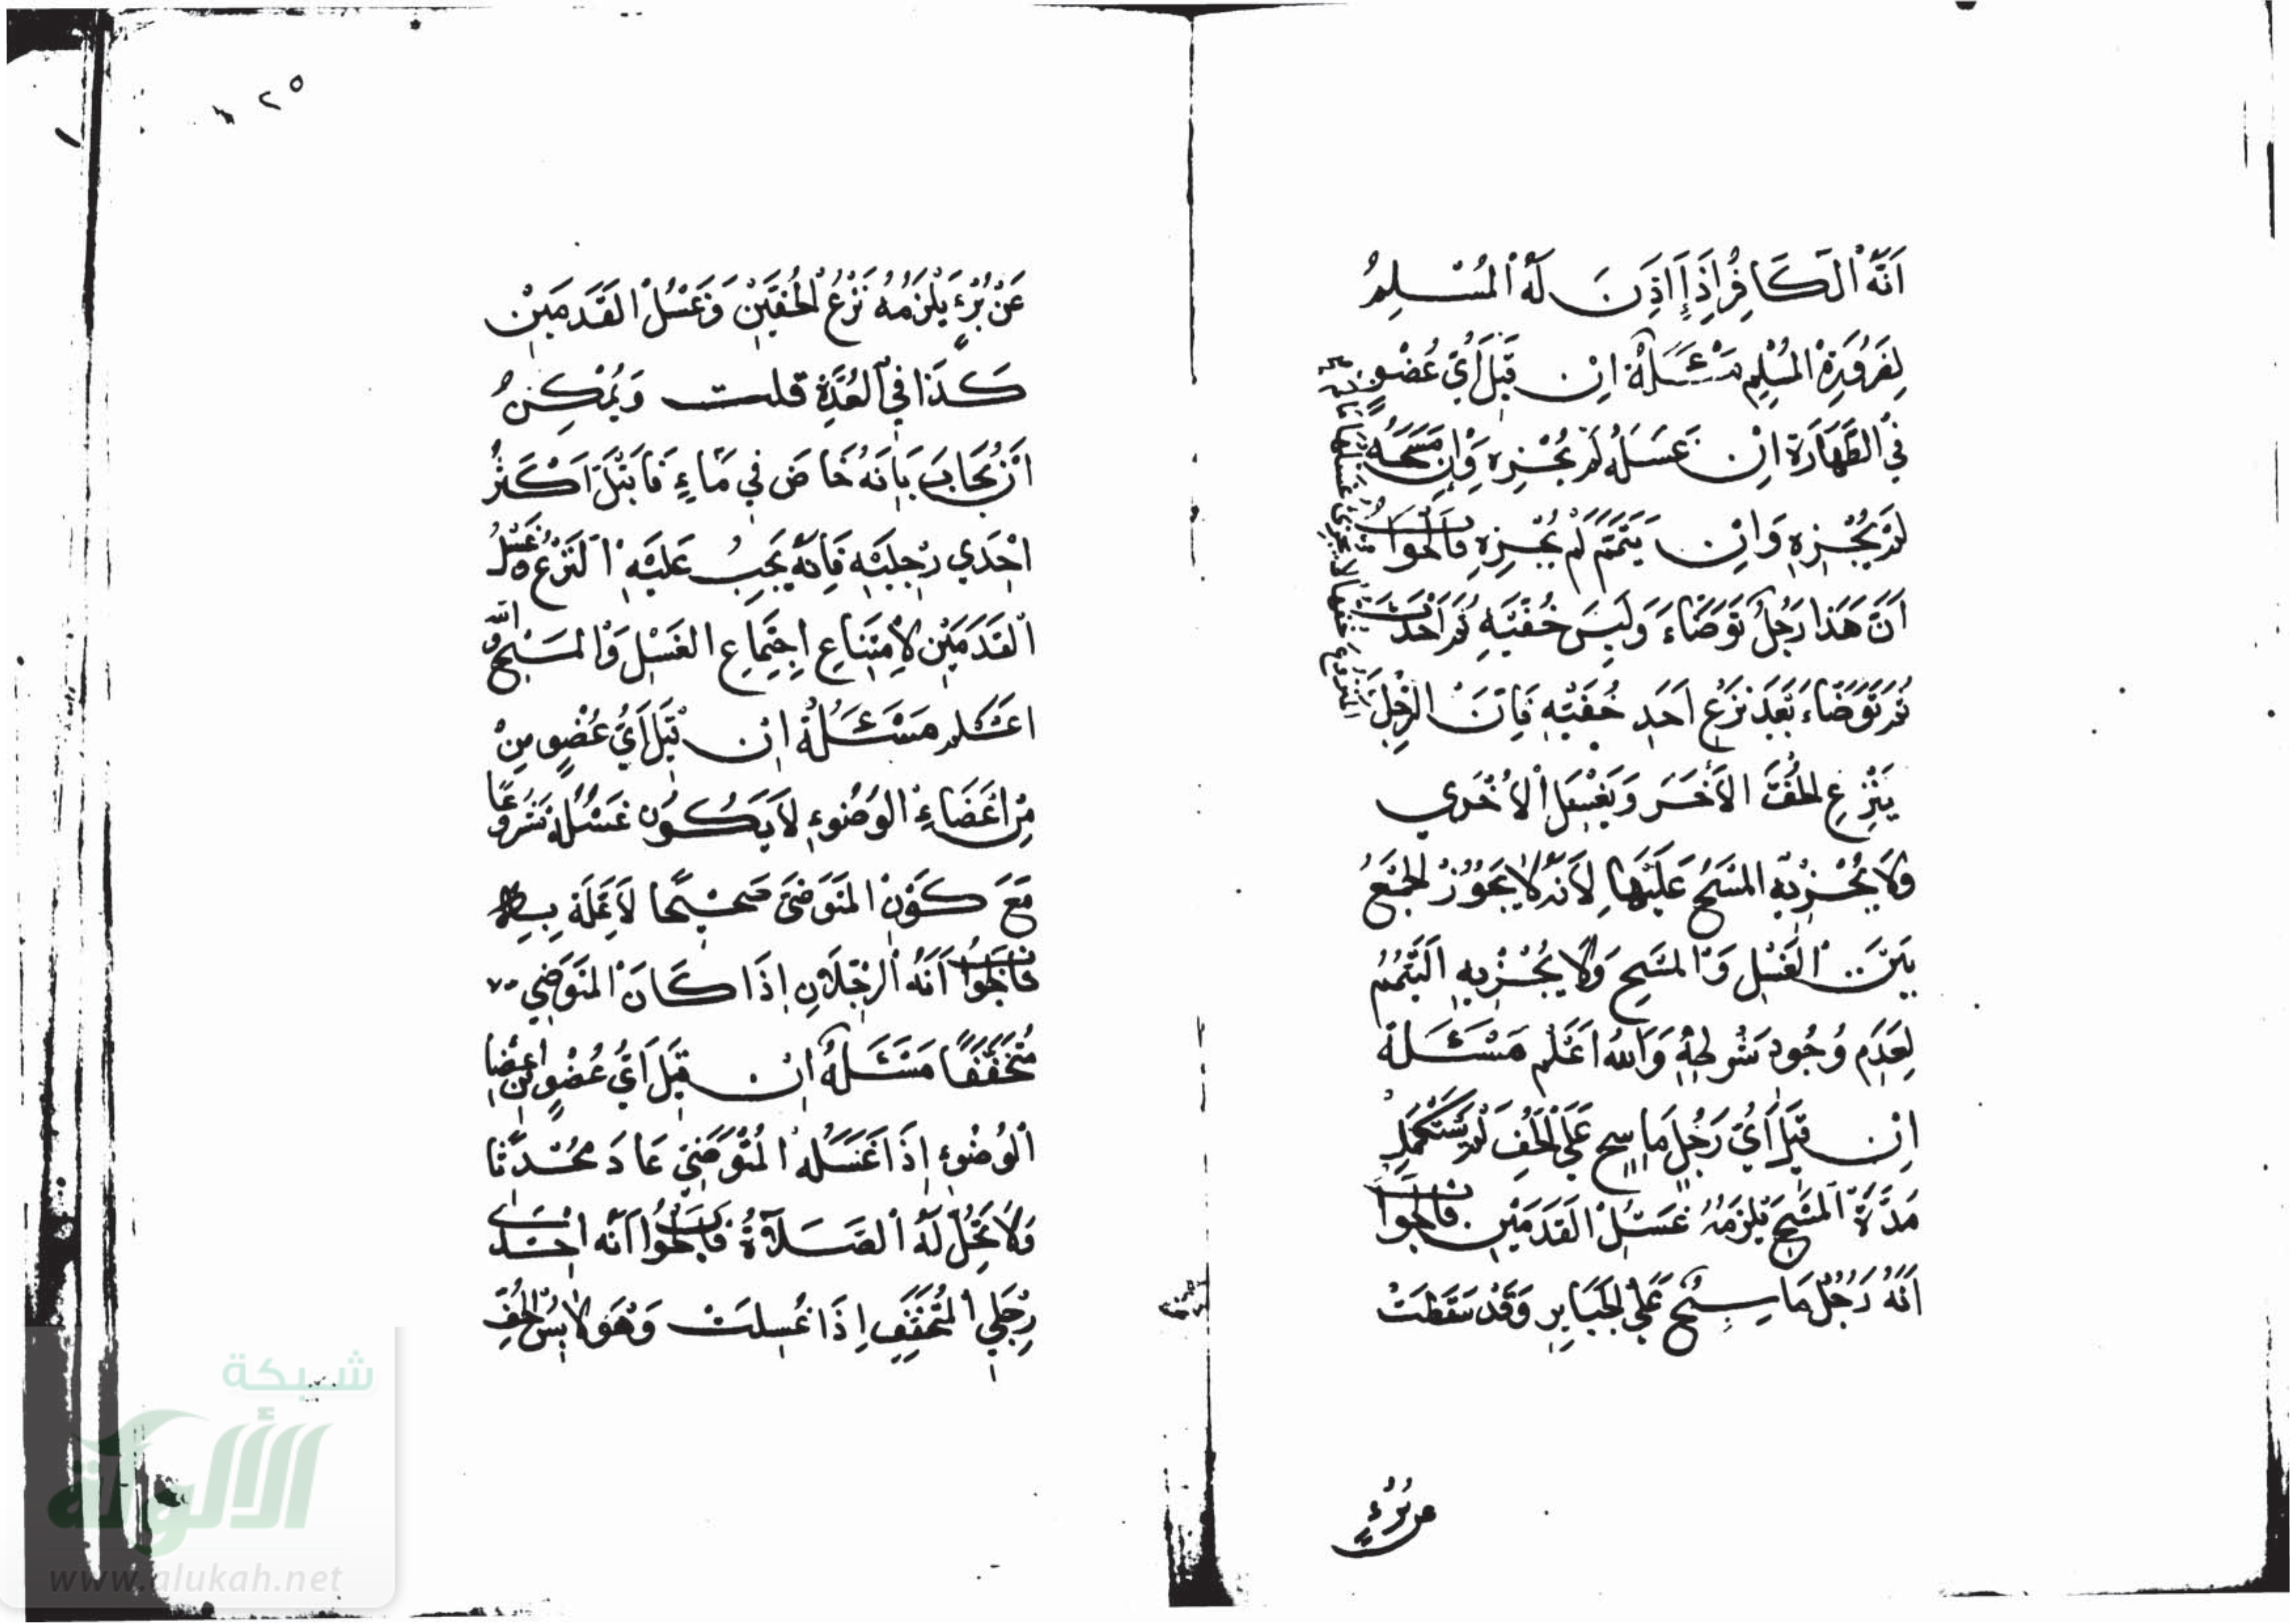 اَنَّهُ الْكَافِرُ اِذَا اَذِنَ لَهُ الْمُسْلِمُ
لِضَرُورَةِ الْمُسْلِمِ مَسْئَلَةٌ اِنْ قِيْلَ اَيُّ عُضْوٍ
فِي الطَّهَارَةِ اِنْ غَسَلَهُ لَمْ يُجْزِهِ وَاِنْ مَسَحَهُ
لَمْ يُجْزِهِ وَاِنْ تَيَمَّمَ لَمْ يُجْزِهِ فَالْجَوَابُ
اَنَّ هَذَا رَجُلٌ تَوَضَّاءَ وَلَبِسَ خُفَّيْهِ ثُمَّ اَحْدَثَ
ثُمَّ تَوَضَّاءَ بَعْدَ نَزْعِ اَحَدِ خُفَّيْهِ فَاِنَّ الرَّجُلَ
يَنْزِعِ الْخُفَّ الْاَخَرَ وَيَغْسِلُ الْاُخْرَي
وَلَا يُجْزِيْهِ الْمَسْحُ عَلَيْهَا لِاَنَّهُ لَا يَجُوْزُ الْجَمْعُ
بَيْنَ الْغَسْلِ وَالْمَسْحِ وَلَا يُجْزِيهِ التَّيَمُّمُ
لِعَدَمِ وُجُودِ شَرْطِهِ وَاللهُ اَعْلَم مَسْئَلَةٌ
اِنْ قِيْلَ اَيُّ رَجُلٍ مَاسِحٍ عَلَي الْخُفِّ لَمْ يَسْتَكْمِلْ
مُدَّةَ الْمَسْحِ يَلْزَمُهُ غَسْلُ الْقَدَمَيْنِ فَالْجَوَابُ
اَنَّهُ رَجُلٌ مَاسِحٌ عَلَي الْجَبَايِرِ وَقَدْ سَقَطَتْ
عن بُرْءٍ
٢٥
عَنْ بُرْءٍ يَلْزَمُهُ نَزْعُ الْخُفَّيْنِ وَغَسْلُ الْقَدَمَيْنِ
كَذَا فِي الْعُدَّةِ قلت وَيُمْكِنُ
اَنْ يُجَابَ بِاَنَّهُ خَاضَ فِي مَاءٍ فَابْتَلَّ اَكْثَرُ
اِحْدَي رِجْلَيْهِ فَاِنَّهُ يَجِبُ عَلَيْهِ النَّزْعُ وغَسْلُ
الْقَدَمَيْنِ لِاِمْتِنَاعِ اِجْتِمَاعِ الْغَسْلِ وَالْمَسْحِ وَاللهُ
اعْلم مَسْئَلَةٌ اِنْ قِيْلَ اَيُّ عُضْوٍ مِنْ
مِنْ اَعْضَاءِ الْوُضُوءِ لَا يَكُونُ غَسْلُهُ مَشْرُوعًا
مَعَ كَوْنِ الْمُتَوَضِّئِ صَحِيْحًا لَا عِلَّةَ بِهِ
فَالْجَوَابُ اَنَّهُ الرِّجْلَانِ اِذَا كَانَ الْمُتَوَضِّي
مُتَخَفِّفًا مَسْئَلَةٌ اِنْ قِيْلَ اَيُّ عُضْوٍ مِنْ اعْضَا
الْوُضُوءِ اِذَا غَسَلَهُ الْمُتَوَضِّئُ عَادَ مُحْدِثًا
وَلَا تَحِلُّ لَهُ الصَّلَاةُ فَالْجَوَابُ اَنَّهُ اِحْدَى
رِجْلَي الْمُتَخَفِّفِ اِذَا غُسِلَتْ وَهُوَ لَابِسُ الْخُفِّ
شبكة
الألوكة
www.alukah.net